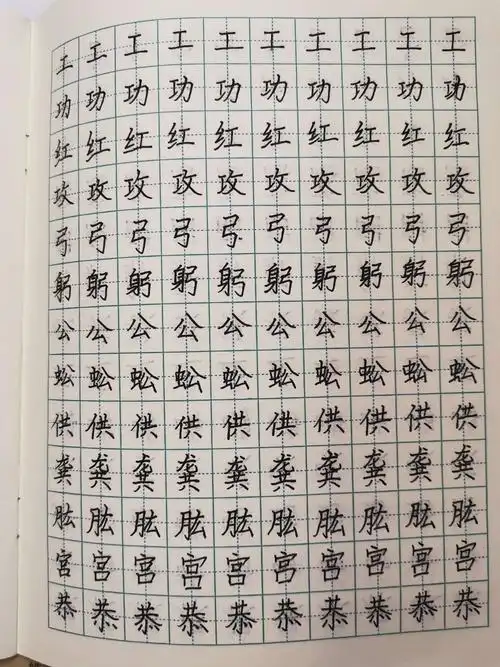 工工工工工工工工工工
功功功功功功功功功功
红红红红红红红红红红
攻攻攻攻攻攻攻攻攻攻
弓弓弓弓弓弓弓弓弓弓
躬躬躬躬躬躬躬躬躬躬
公公公公公公公公公公
蚣蚣蚣蚣蚣蚣蚣蚣蚣蚣
供供供供供供供供供供
龚龚龚龚龚龚龚龚龚龚
肱肱肱肱肱肱肱肱肱肱
宫宫宫宫宫宫宫宫宫宫
恭恭恭恭恭恭恭恭恭恭